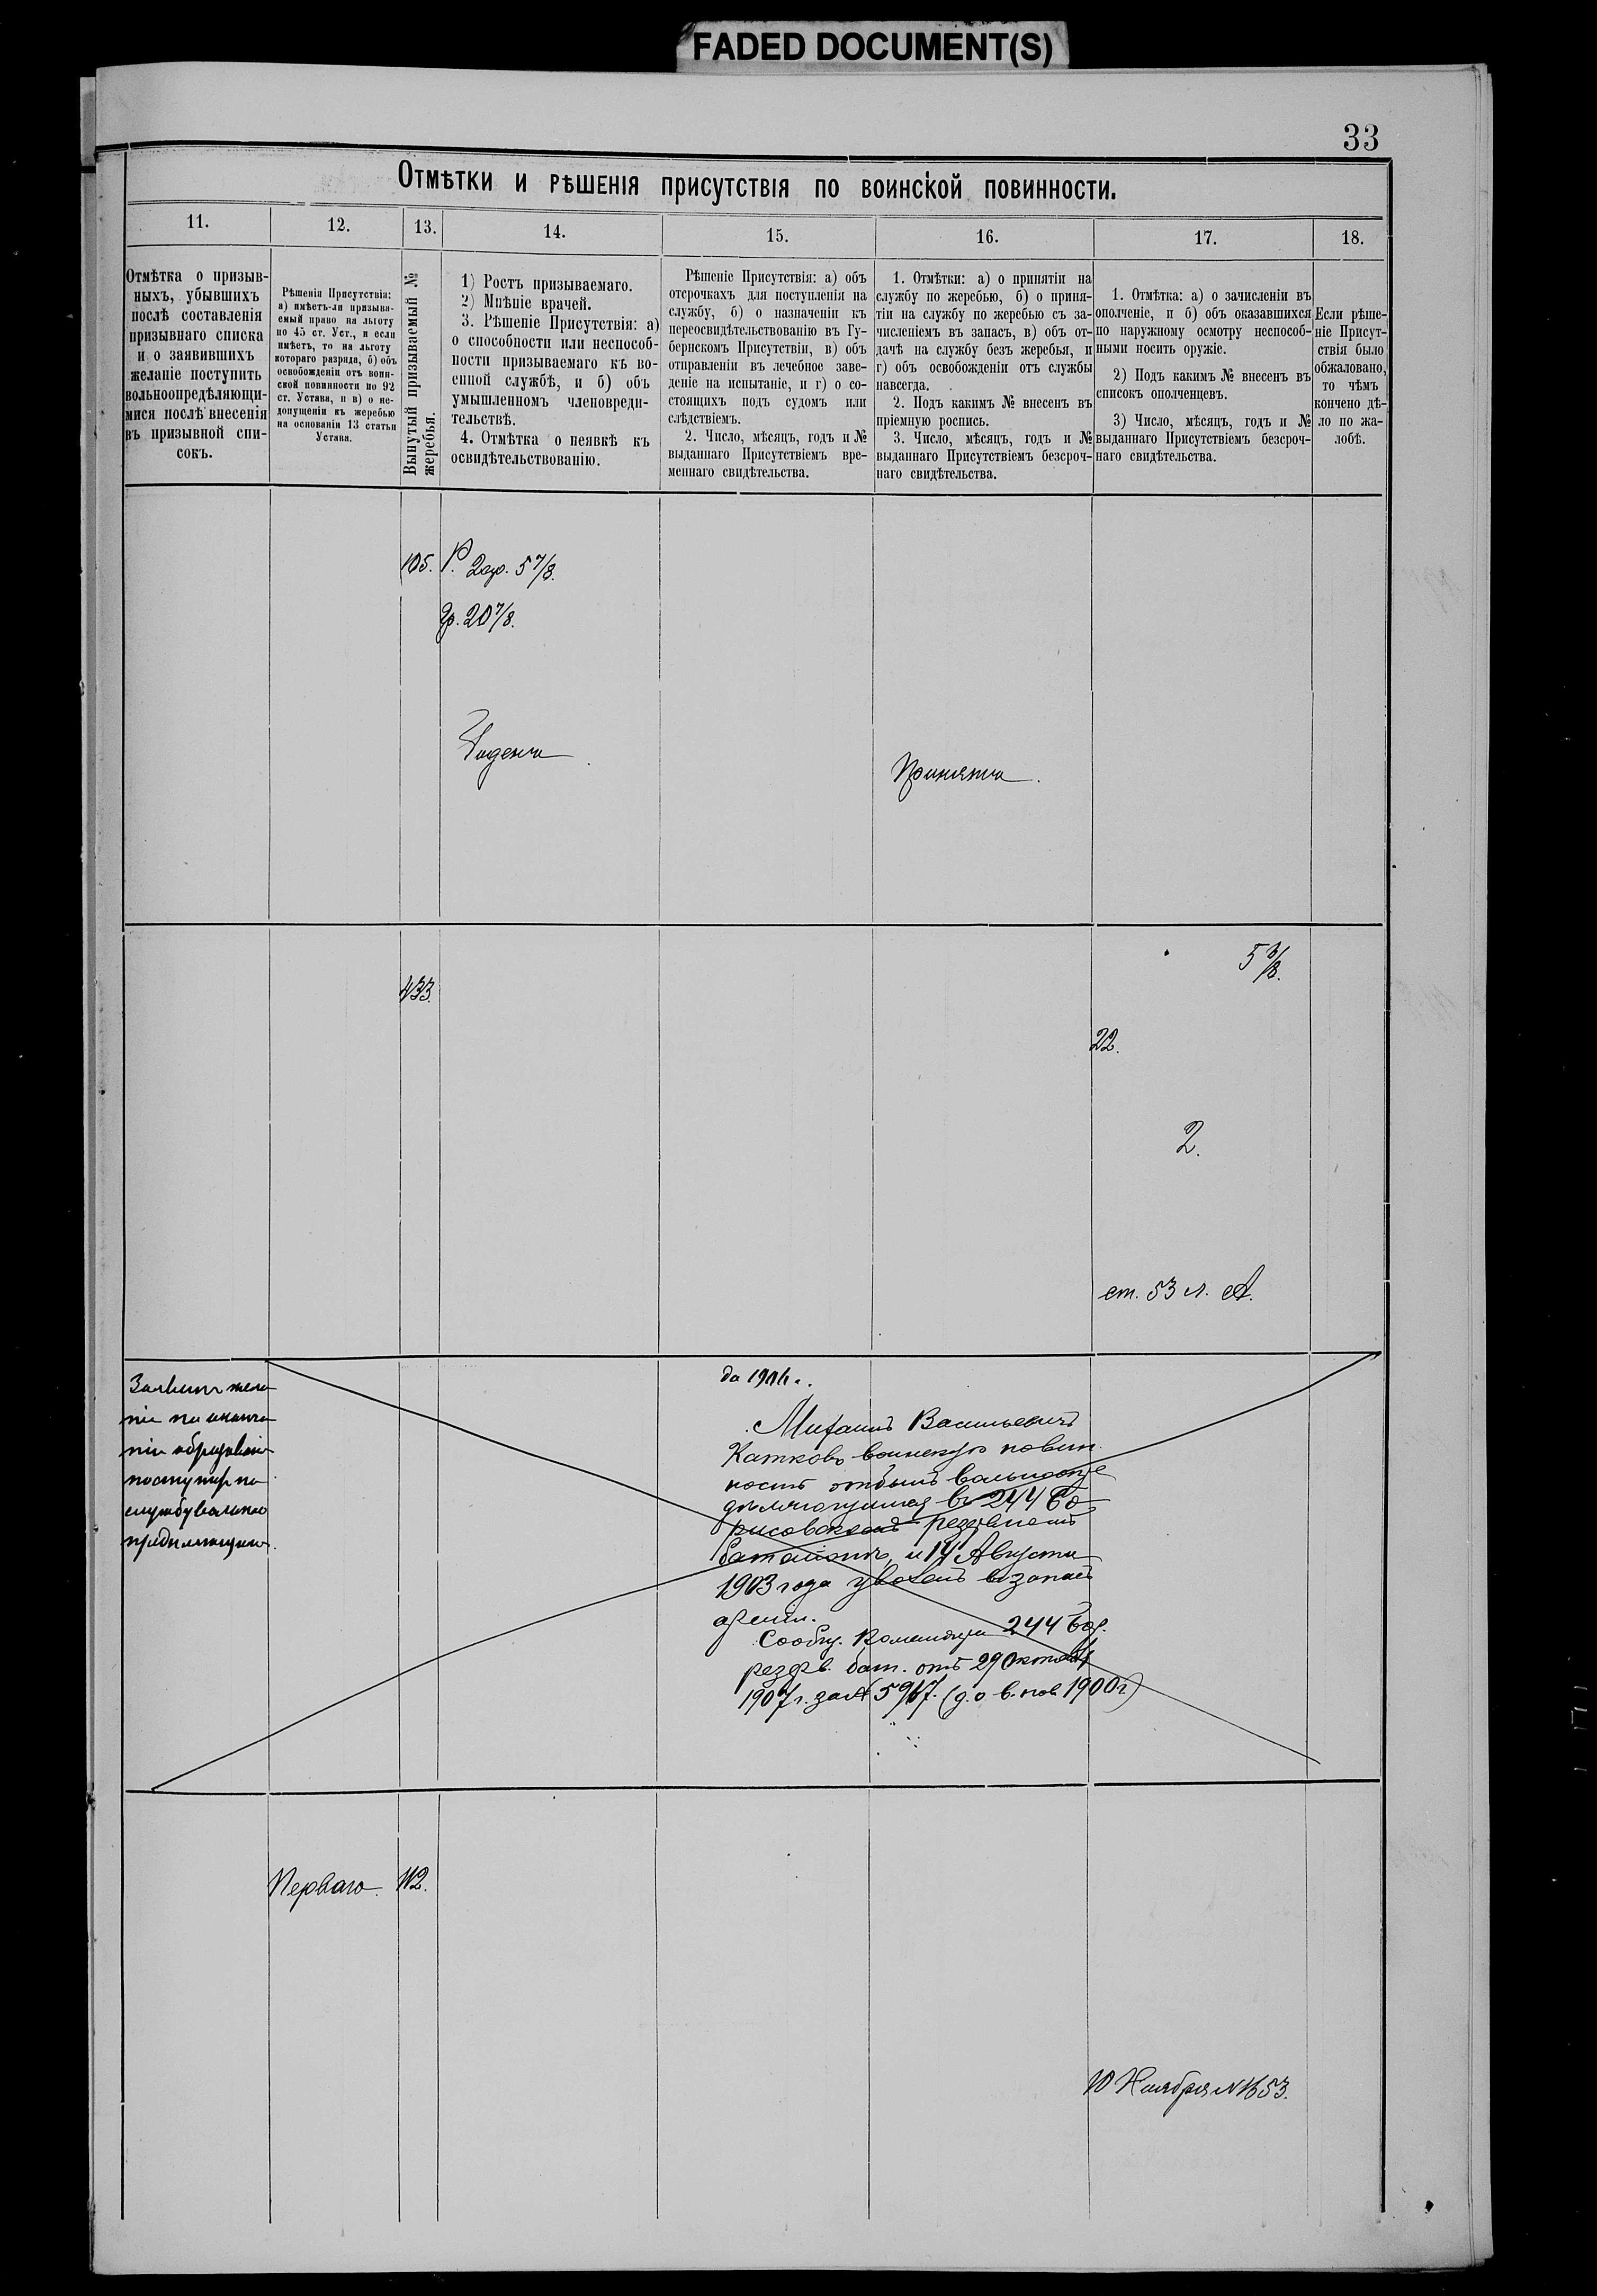 FADED DOCUMENT(S)
33
Отмѣтки и рѣшенія присутствія по воинской повинности.
11.
12.
13.
14.
15.
16.
17.
18.
Отмѣтка о призыв-
ныхъ, убывшихъ
послѣ составленія
призывнаго списка
и о заявившихъ
желаніе поступить
вольноопредѣляющи-
мися послѣ внесенія
въ призывной спи-
сокъ.
Рѣшенія Присутствія:
а) имѣетъ-ли призыва-
емый право на льготу
по 45 ст. Уст., и если
имѣетъ, то на льготу
котораго разряда, б) объ
освобожденіи отъ воин-
ской повинности по 92
ст. Устава, и в) о не-
допущеніи къ жеребью
на основаніи 13 статьи
Устава.
Вынутый призываемый №
жеребья.
1) Ростъ призываемаго.
2) Мнѣніе врачей.
3. Рѣшеніе Присутствія: а)
о способности или неспособ-
ности призываемаго къ во-
енной службѣ, и б) объ
умышленномъ членовреди-
тельствѣ.
4. Отмѣтка о неявкѣ къ
освидѣтельствованію.
Рѣшеніе Присутствія: а) объ
отсрочкахъ для поступленія на
службу, б) о назначеніи къ
переосвидѣтельствованію въ Гу-
бернскомъ Присутствіи, в) объ
отправленіи въ лечебное заве-
деніе на испытаніе, и г) о со-
стоящихъ подъ судомъ или
слѣдствіемъ.
2. Число, мѣсяцъ, годъ и №
выданнаго Присутствіемъ вре-
меннаго свидѣтельства.
1. Отмѣтки: а) о принятіи на
службу по жеребью, б) о приня-
тіи на службу по жеребью съ за-
численіемъ въ запасъ, в) объ от-
дачѣ на службу безъ жеребья, и
г) объ освобожденіи отъ службы
навсегда.
2. Подъ какимъ № внесенъ въ
пріемную роспись.
3. Число, мѣсяцъ, годъ и №
выданнаго Присутствіемъ безсроч-
наго свидѣтельства.
1. Отмѣтка: а) о зачисленіи въ
ополченіе, и б) объ оказавшихся
по наружному осмотру неспособ-
ными носить оружіе.
2) Подъ какимъ № внесенъ въ
списокъ ополченцевъ.
3) Число, мѣсяцъ, годъ и №
выданнаго Присутствіемъ безсроч-
наго свидѣтельства.
Если рѣше-
ніе Присут-
ствія было
обжаловано,
то чѣмъ
кончено дѣ-
ло по жа-
лобѣ.
105.
Р. 2 ар. 5 7/8.
Гр. 20 7/8.
Годенъ
Принятъ.
433.
5 3/8.
22.
2.
ст. 53 л. А.
Заявилъ жела
ніе по оконча
ніи образованія
поступить на
службу вольноо
предѣляющимся
Михаилъ Васильевичъ
Катковъ воинскую повин
ность отбылъ вольноопре
дѣляющимся въ 244 Бо
рисовскомъ резервномъ
баталіонѣ, и 14 Августа
1903 года уволенъ въ запасъ
арміи.
Сообщ. Командира 244 Бор.
резерв. бат. отъ 29 октяб.
1907 г. за № 5967. (д. о в. пов. 1900 г)
Перваго.
112.
10 Ноября № 1653.